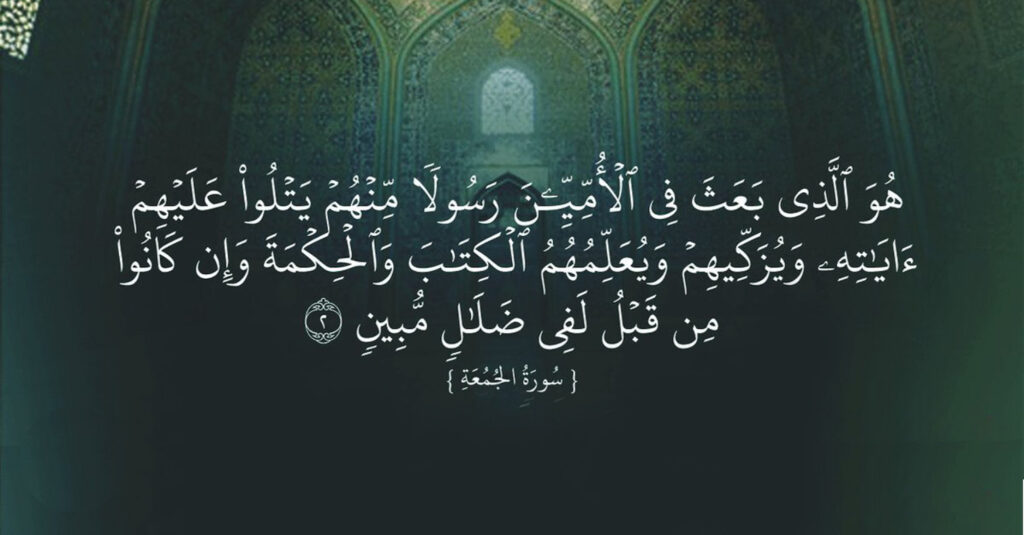 هُوَ ٱلَّذِى بَعَثَ فِى ٱلْأُمِّيِّـۧنَ رَسُولًا مِّنْهُمْ يَتْلُوا۟ عَلَيْهِمْ
ءَايَـٰتِهِۦ وَيُزَكِّيهِمْ وَيُعَلِّمُهُمُ ٱلْكِتَـٰبَ وَٱلْحِكْمَةَ وَإِن كَانُوا۟
مِن قَبْلُ لَفِى ضَلَـٰلٍ مُّبِينٍ ٢
{ سُورَةُ الجُمُعَةِ }